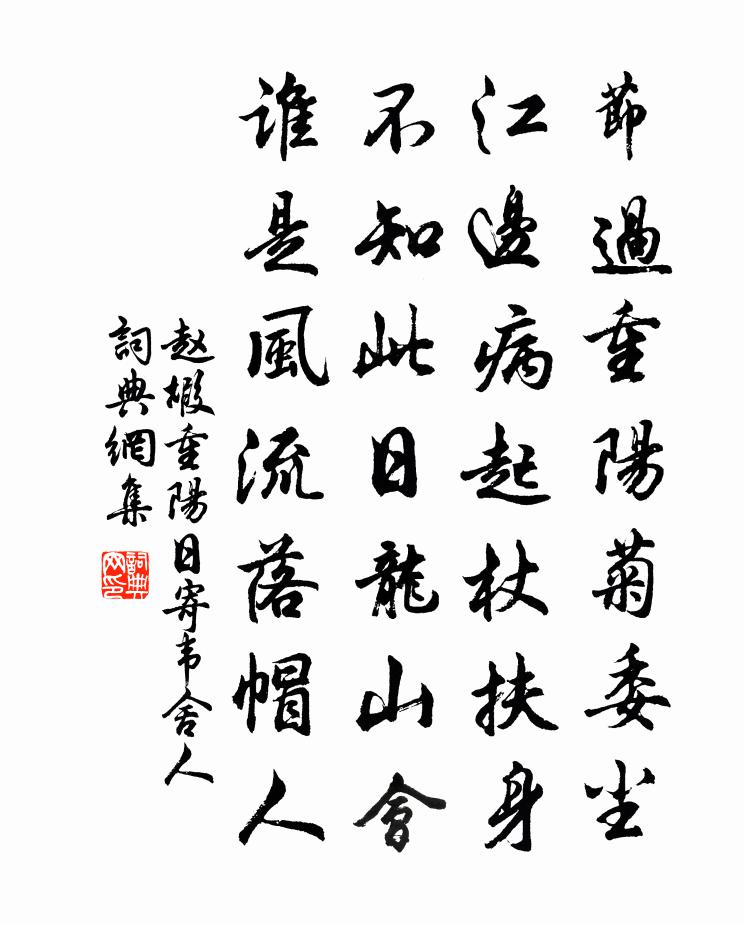 節過重陽菊委尘
江邊病起杖扶身
不知此日龍山會
誰是風流落帽人
赵嘏重陽日寄韦舍人
詞典網集
詞典
网印